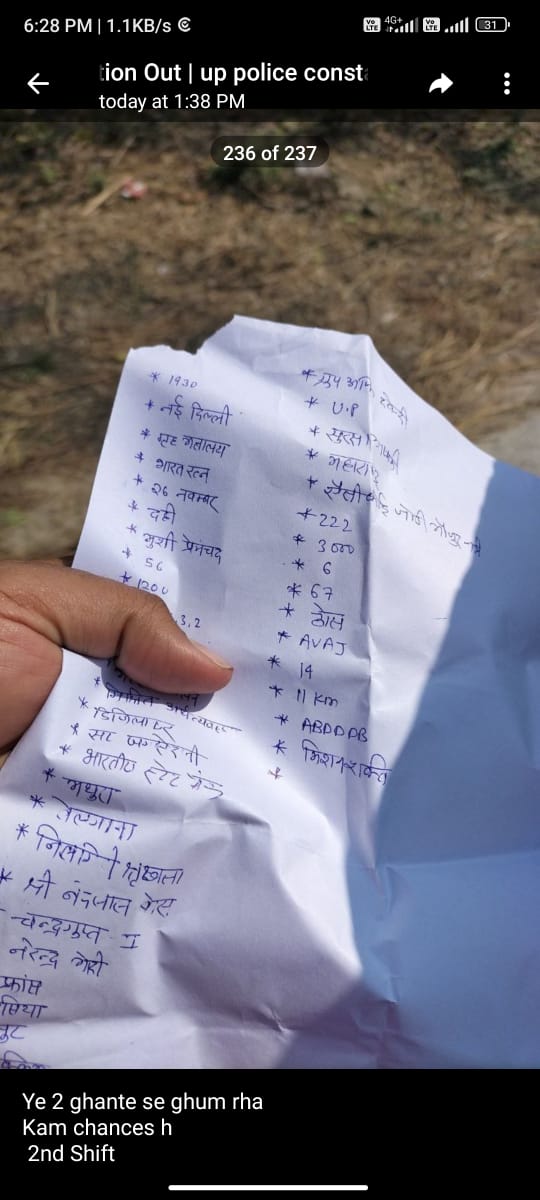 6:28 PM | 1.1KB/s
Vo LTE 4G+ Vo LTE 31
tion Out | up police const
today at 1:38 PM
236 of 237
* 1930
* नई दिल्ली
* गृह मंत्रालय
* भारत रत्न
* 26 नवम्बर
* दही
* मुंशी प्रेमचंद
* 56
* 1200
3.2
* मिश्रित अर्थव्यवस्था
* डिजिलॉकर
*
* भारतीय स्टेट बैंक
* मथुरा
* तेलंगाना
* निलगिरी श्रृंखला
* श्री नंदलाल
चन्द्रगुप्त I
नरेन्द्र मोदी
फ्रांस
*
* U.P
*
* महाराष्ट्र
*
* 222
* 3000
* 6
* 67
* ठोस
* AVAJ
* 14
* 11 Km
* ABDDDB
* मिशन शक्ति
*
Ye 2 ghante se ghum rha
Kam chances h
2nd Shift